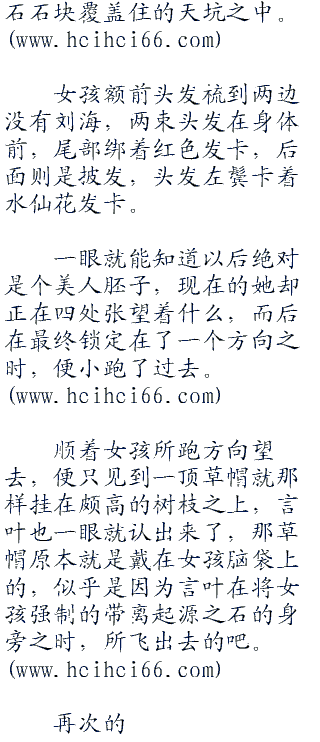 石石块覆盖住的天坑之中。
(www.hcihci66.com)
女孩额前头发梳到两边
没有刘海，两束头发在身体
前，尾部绑着红色发卡，后
面则是披发，头发左鬓卡着
水仙花发卡。
一眼就能知道以后绝对
是个美人胚子，现在的她却
正在四处张望着什么，而后
在最终锁定在了一个方向之
时，便小跑了过去。
(www.hcihci66.com)
顺着女孩所跑方向望
去，便只见到一顶草帽就那
样挂在颇高的树枝之上，言
叶也一眼就认出来了，那草
帽原本就是戴在女孩脑袋上
的，似乎是因为言叶在将女
孩强制的带离起源之石的身
旁之时，所飞出去的吧。
(www.hcihci66.com)
再次的